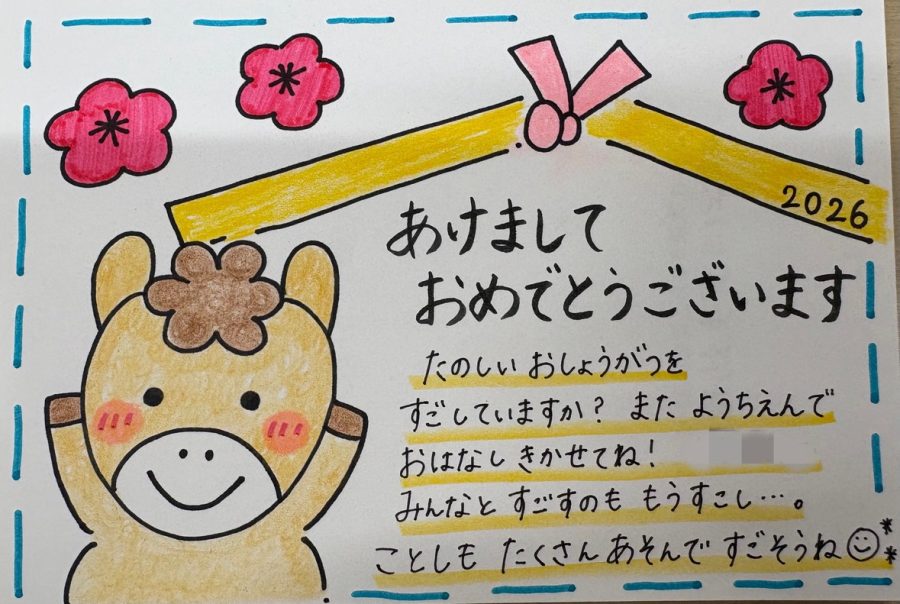 2026
あけまして
おめでとうございます
たのしい おしょうがつを
すごしていますか? また ようちえんで
おはなし きかせてね!
みんなと すごすのも もうすこし…。
ことしも たくさん あそんで すごそうね